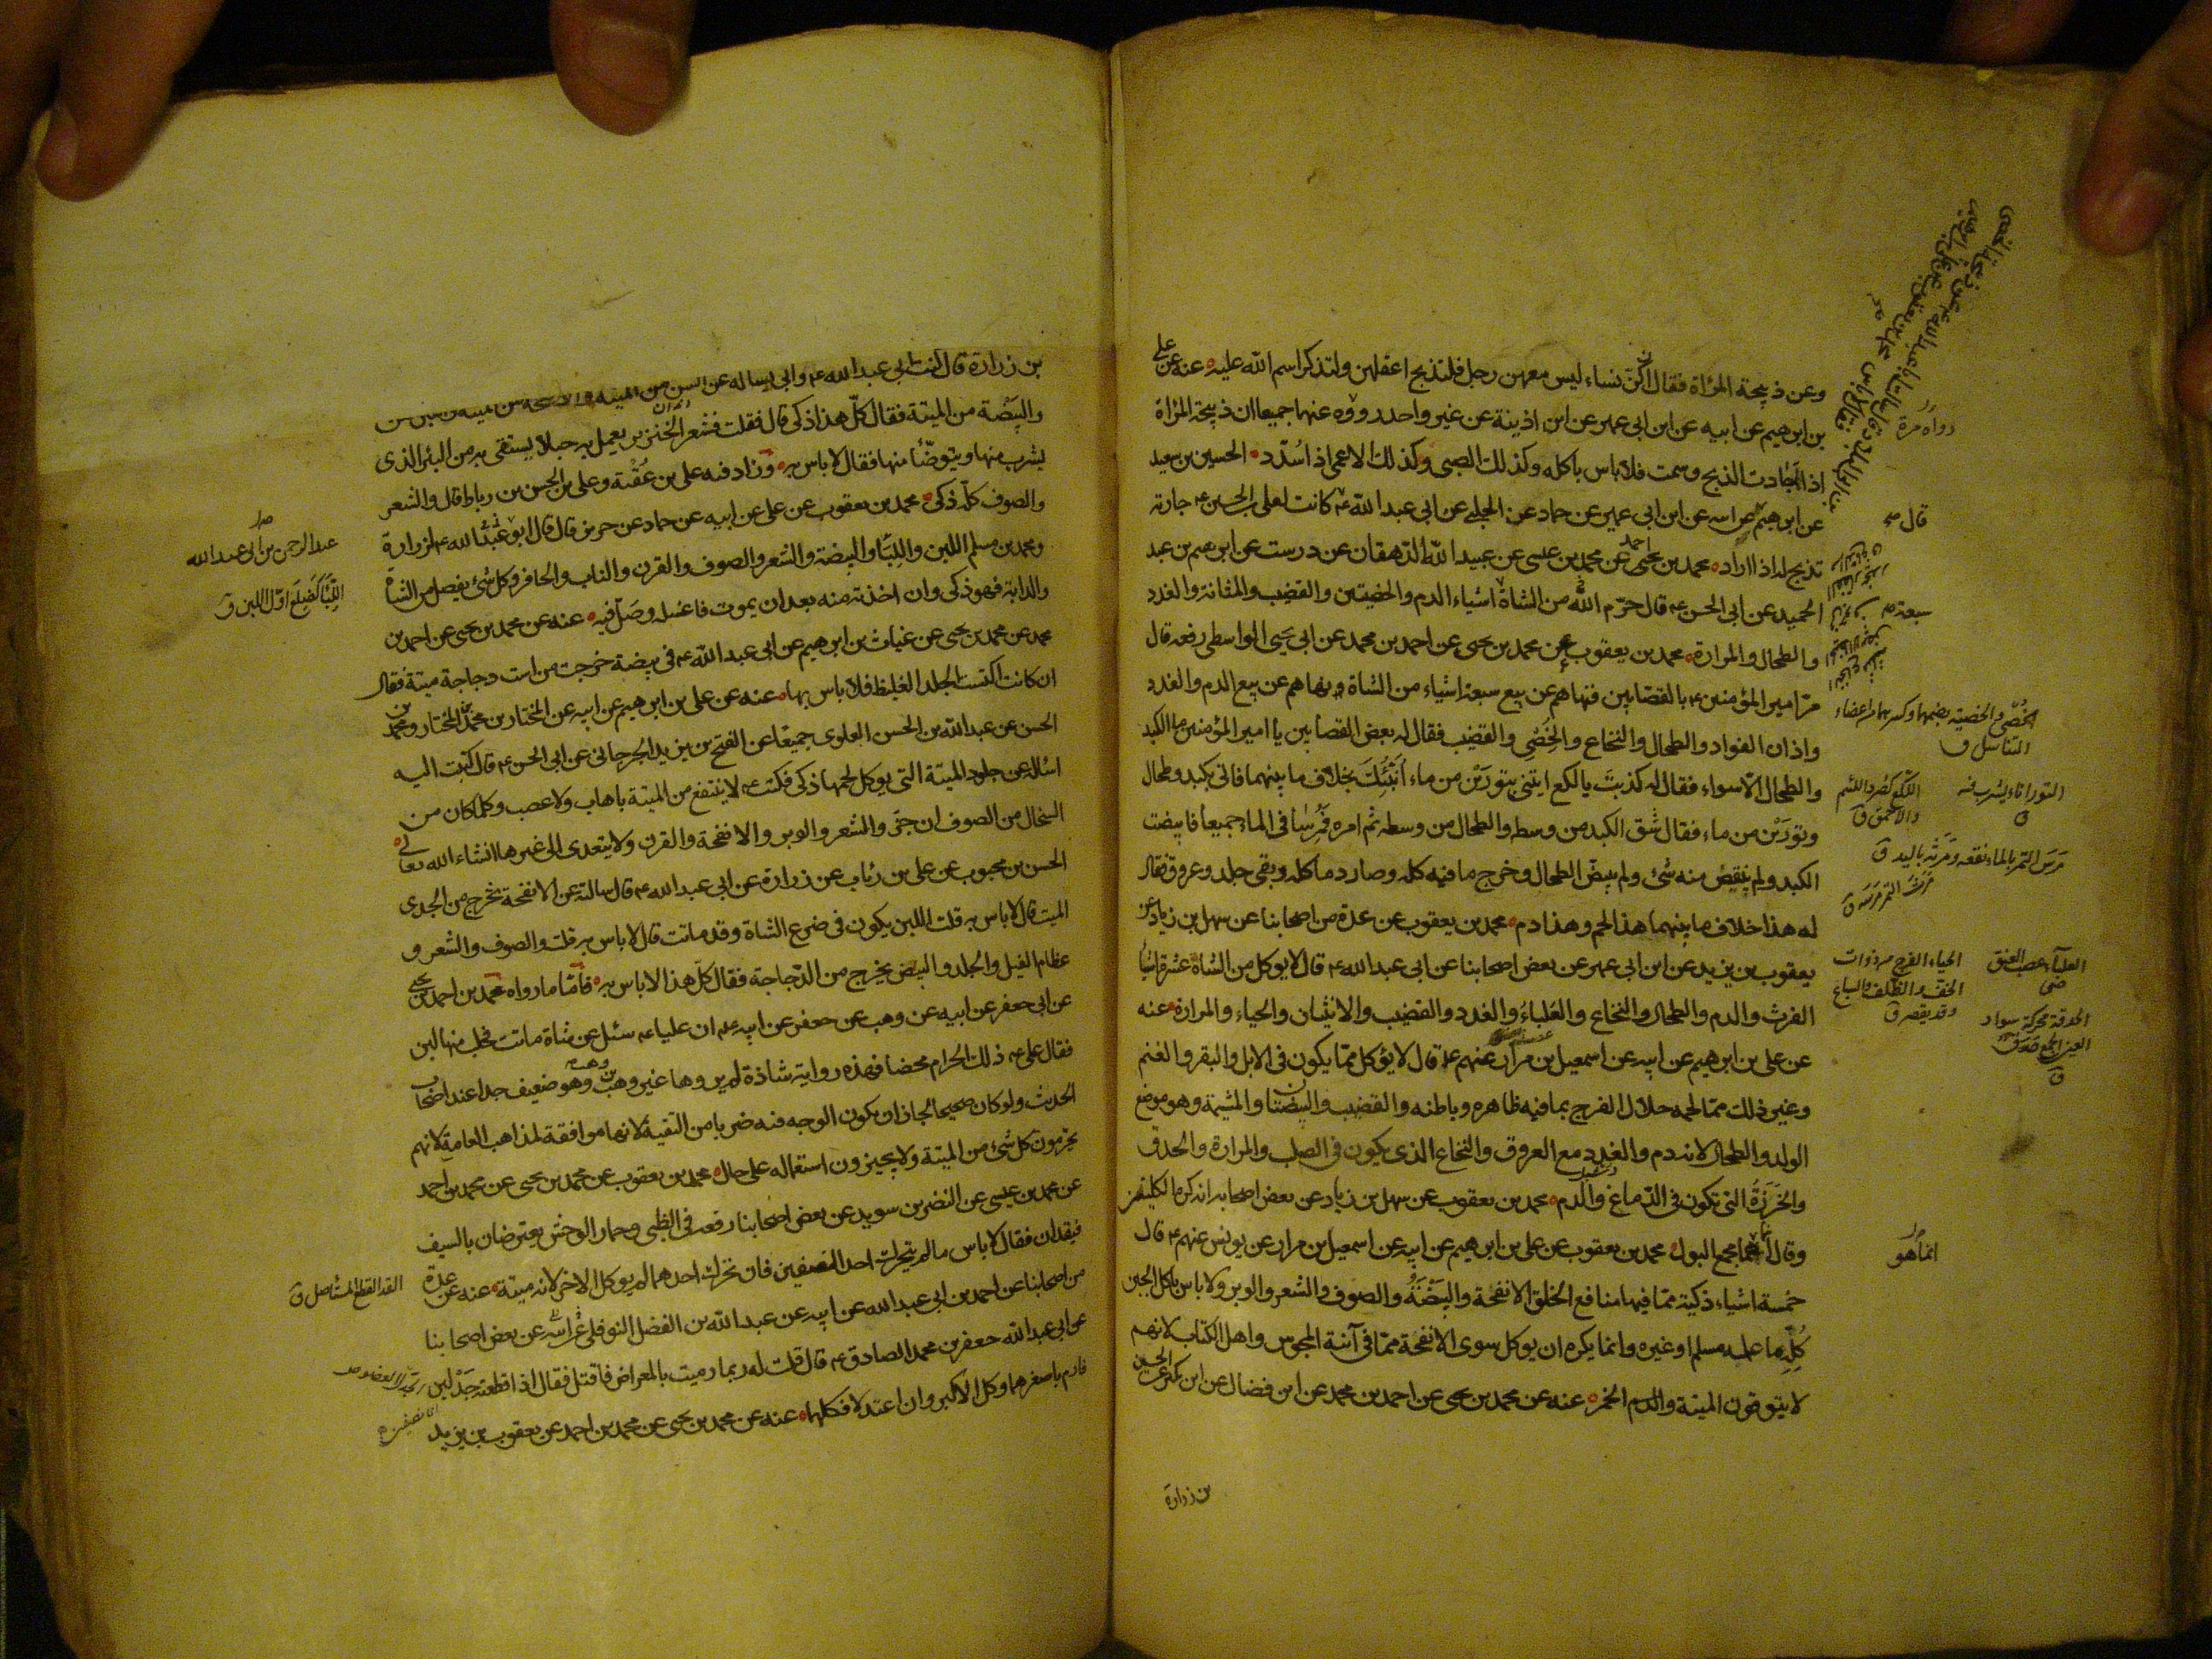 وعن ذبيحة المرأة فقال ان كن نساء ليس معهن رجل فلتذبح اعقلهن ولتذكر اسم الله عليه عنه عن على
بن ابرهيم عن ابيه عن ابن ابى عمير عن ابن اذينة عن غير واحد رووه عنهما جميعا ان ذبيحة المراة
اذا اجادت الذبح وسمت فلا باس باكله وكذلك الصبى وكذلك الاعمى اذا سُدّد الحسين بن سعيد
عن ابن ابى عمير عن حماد عن الحلبى عن ابى عبد الله ع كانت لعلى بن الحسين ع جارية
تذبح له اذا اراد محمد بن يحيى عن احمد عن محمد بن عيسى عن عبيد الله الدهقان عن درست عن ابرهيم بن عبد
الحميد عن ابى الحسن ع قال حرّم الله من الشاة اشياء الدم والخصيتين والقضيب والمثانة والغدد
والطحال والمرارة محمد بن يعقوب عن محمد بن يحيى عن احمد بن محمد عن ابى يحيى الواسطى رفعه قال
مرّ امير المؤمنين ع بالقصابين فنهاهم عن بيع سبعة اشياء من الشاة ونهاهم عن بيع الدم والغدد
واذان الفواد والطحال والنخاع والخُصٰى والقضيب فقال له بعض القصابين يا امير المؤمنين ما الكبد
والطحال الا سواء فقال له كذبت يا لكع ايتنى بتورَيْن من ماء اُنَبِّئْكَ بخلاف ما بينهما فاتى بكبد وطحال
وتورَيْن من ماء فقال شق الكبد من وسطه والطحال من وسطه ثم امره فمُرِسا فى الماء جميعا فابيضت
الكبد ولم ينقص منه شئ ولم يبيضّ الطحال وخرج ما فيه كله وصار دما كله وبقى جلد وعروق فقال
له هذا خلاف ما بينهما هذا لحم وهذا دم محمد بن يعقوب عن عدة من اصحابنا عن سهل بن زياد عن
يعقوب بن يزيد عن ابن ابى عمير عن بعض اصحابنا عن ابى عبد الله ع قال لا يوكل من الشاة عشرة اشيا
الفرث والدم والطحال والنخاع والعَلباءُ والغدد والقضيب والانثيان والحياء والمرارة عنه
عن على بن ابرهيم عن ابيه عن اسمعيل بن مرار عنهم ع قال لا يؤكل مما يكون فى الابل والبقر والغنم
وغير ذلك مما لحمه حلال الفرج بما فيه ظاهره وباطنه والقضيب والبيضتان والمشيمة وهو موضع
الولد والطحال لانه دم والغدد مع العروق والنخاع الذى يكون فى الصلب والمرارة والحدق
والخَرَزَةُ التى تكون فى الدماغ والدم محمد بن يعقوب عن سهل بن زياد عن بعض اصحابه انه كره الكليتين
وقال انما هما مجمع البول محمد بن يعقوب عن على بن ابرهيم عن ابيه عن اسمعيل بن مرار عن يونس عنهم ع قال
خمسة اشياء ذكية مما فيها منافع الخلق الانفحة والبَيْضَةُ والصوف والشعر والوبر ولا باس باكل الجبن
كُلِّه ما عمله مسلم او غيره وانما يكره ان يوكل سوى الانفحة مما فى آنية المجوس واهل الكتاب لانهم
لا يتوقون الميتة والخمر عنه عن محمد بن يحيى عن احمد بن محمد عن ابن فضال عن ابن بكير عن الحسين
بن زرارة
رواه مرة
قال
سبعة
الخُصٰى
التناسل ق
التور اناء يشرب فيه ق
اللُّكَع كصُرَد اللئيم والاحمق ق
مَرَسَ التمر بالماء نقعه ومرثه باليد ق
مَرَثَ التمر مَرَسَه ق
العلباء عصب العنق
الحياء الفرج من ذوات الخف والظلف والسباع وقد يقصر ق
الحدقة محركة سواد العين الجمع حَدَق ق
انما هو
بن زرارة قال كنت عند ابى عبد الله ع وابى يساله عن السن من الميتة
والبيضة من الميتة فقال كلّ هذا ذكى قال فقلت فشعر الخنزير يعمل به حبلا يستقى به من البئر الذى
يشرب منها ويتوضأ منها فقال لا باس به وزاد فيه على بن عقبة وعلى بن الحسن بن رباط قال والشعر
والصوف كله ذكى محمد بن يعقوب عن على عن ابيه عن حماد عن حريز قال قال ابو عبد الله ع لزرارة
ومحمد بن مسلم اللبن واللِبَأ والبيضة والشعر والصوف والقرن والناب والحافر وكل شئ يفصل من الشاة
والدابة فهو ذكى وان اخذته منه بعد ان يموت فاغسله وصَلّ فيه عنه عن محمد بن يحيى عن احمد بن
محمد عن محمد بن يحيى عن غياث بن ابرهيم عن ابى عبد الله ع فى بيضة خرجت من است دجاجة ميتة فقال
ان كانت اكتست الجلد الغليظ فلا باس بها عنه عن على بن ابرهيم عن ابيه عن المختار بن محمد بن المختار ومحمد بن
الحسن عن عبد الله بن الحسن العلوى جميعا عن الفتح بن يزيد الجرجانى عن ابى الحسن ع قال كتبت اليه
اسئله عن جلود الميتة التى يوكل لحمها ذكى فكتب ع لا ينتفع من الميتة باهاب ولا عصب وكلما كان من
السخال من الصوف ان جز والشعر والوبر والانفحة والقرن ولا يتعدى الى غيرها انشاء الله تعالى
الحسن بن محبوب عن على بن رئاب عن زرارة عن ابى عبد الله ع قال سالته عن الانفحة تخرج من الجدى
الميت قال لا باس به قلت اللبن يكون فى ضرع الشاة وقد ماتت قال لا باس به قلت والصوف والشعر و
عظام الفيل والجلد والبيض يخرج من الدجاجة فقال كلّ هذا لا باس به فامّا ما رواه محمد بن احمد بن يحيى
عن ابى جعفر عن ابيه عن وهب عن جعفر عن ابيه ع ان عليا ع سئل عن شاة ماتت فحلب منها لبن
فقال على ع ذلك الحرام محضا فهذه رواية شاذة لم يروها غير وهب بن وهب وهو ضعيف جدا عند اصحاب
الحديث ولو كان صحيحا لجاز ان يكون الوجه فيه ضربا من التقية لانها موافقة لمذاهب العامة لانهم
يحرمون كل شئ من الميتة ولا يجيزون استعماله على حال محمد بن يعقوب عن محمد بن يحيى عن محمد بن احمد
عن محمد بن عيسى عن النضر بن سويد عن بعض اصحابنا رفعه فى الظبى وحمار الوحش يعترضان بالسيف
فيقدان فقال لا باس ما لم يتحرك احد النصفين فان تحرك احدهما لم يوكل الاخر لانه ميتة عنه عن عدة
من اصحابنا عن احمد بن ابى عبد الله عن ابيه عن عبد الله بن الفضل النوفلى عن ابيه عن بعض اصحابنا
عن ابى عبد الله جعفر بن محمد الصادق ع قال قلت له ربما رميت بالمعراض فاقتل فقال اذا قطعه جَدْلين
فارم باصغرهما وكل الاكبر وان اعتدلا فكلهما عنه عن محمد بن يحيى عن محمد بن احمد عن يعقوب بن يزيد
عبد الرحمن بن ابى عبد الله
اللِّبَأ كضِلَع اول اللبن ق
القد القطع المستأصل ق